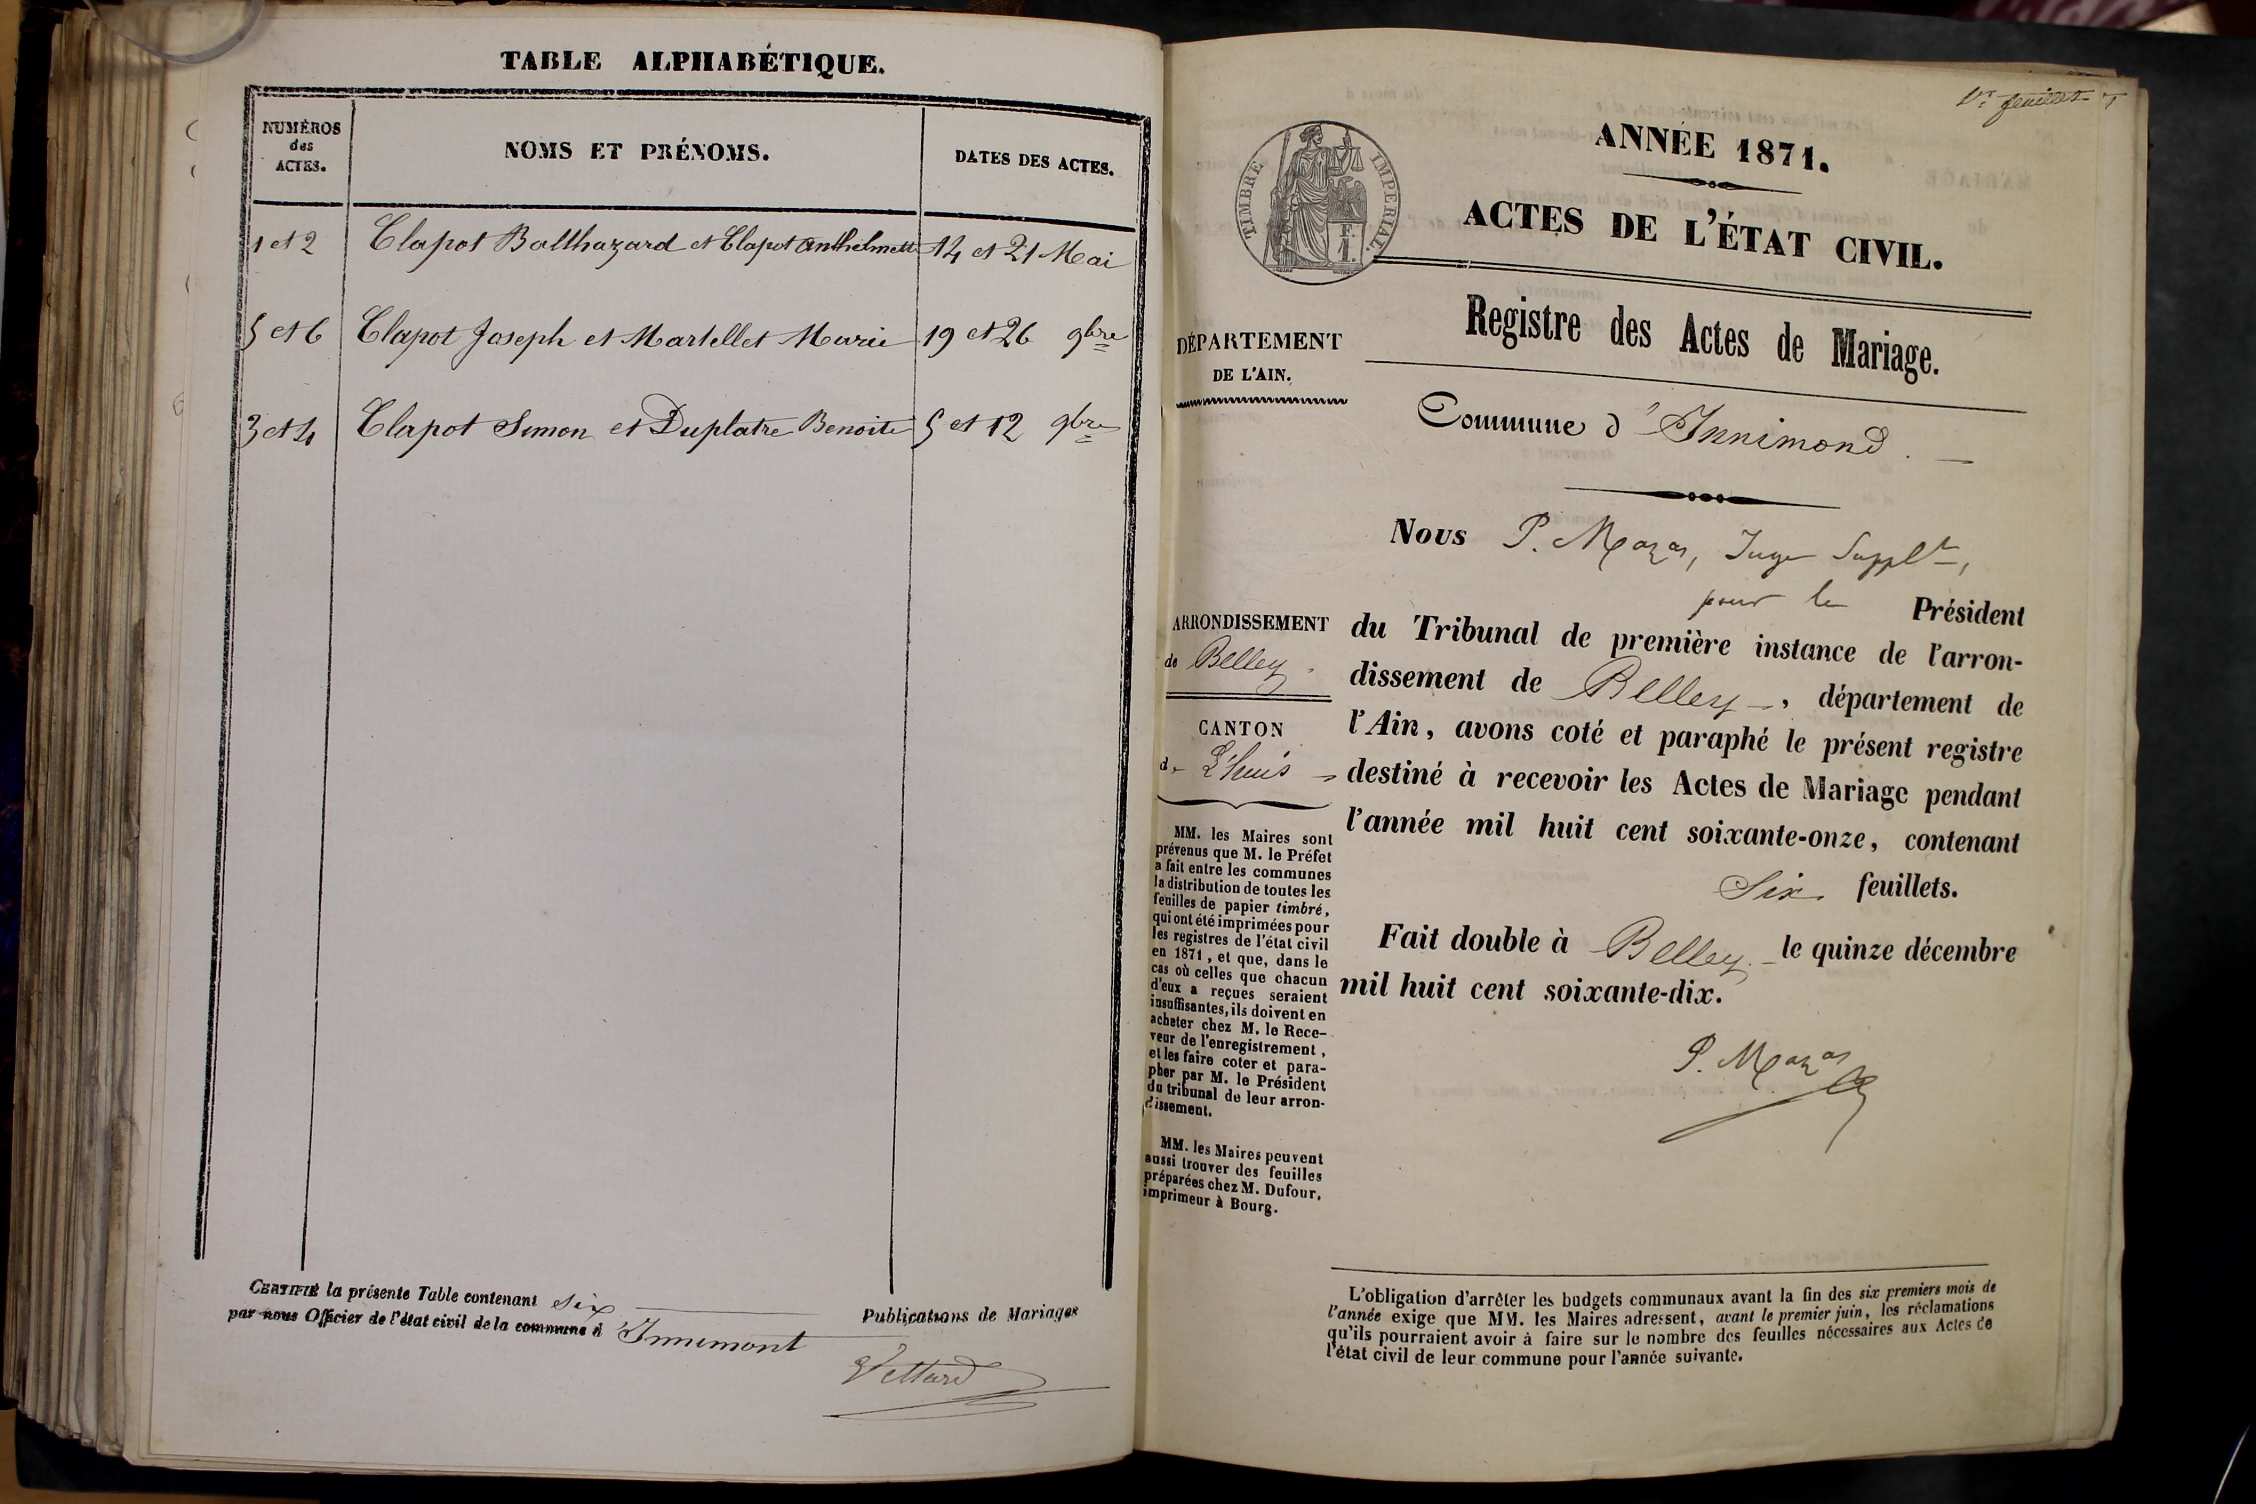 TABLE ALPHABÉTIQUE.
NUMÉROS
des
ACTES.
NOMS ET PRÉNOMS.
DATES DES ACTES.
1 et 2 Clapot Balthazard et Clapot Anthelmette 14 et 21 Mai
5 et 6 Clapot Joseph et Martellet Marie 19 et 26 9bre
3 et 4 Clapot Simon et Duplatre Benoite 5 et 12 9bre
CERTIFIÉ la présente Table contenant six Publications de Mariages
par nous Officier de l'état civil de la commune d'Innimont
Vettard
1er feuillet
ANNÉE 1871.
TIMBRE IMPERIAL.
F.
1.
ACTES DE L'ÉTAT CIVIL.
Registre des Actes de Mariage.
DÉPARTEMENT
DE L'AIN.
Commune d'Innimond.
Nous P. Mazas, Juge Supplt,
pour le Président
du Tribunal de première instance de l'arron-
dissement de Belley, département de
l'Ain, avons coté et paraphé le présent registre
destiné à recevoir les Actes de Mariage pendant
l'année mil huit cent soixante-onze, contenant
Six feuillets.
Fait double à Belley le quinze décembre
mil huit cent soixante-dix.
P. Mazas
ARRONDISSEMENT
de Belley.
CANTON
d L'huis
MM. les Maires sont
prévenus que M. le Préfet
a fait entre les communes
la distribution de toutes les
feuilles de papier timbré,
qui ont été imprimées pour
les registres de l'état civil
en 1871, et que, dans le
cas où celles que chacun
d'eux a reçues seraient
insuffisantes, ils doivent en
acheter chez M. le Rece-
veur de l'enregistrement,
et les faire coter et para-
pher par M. le Président
du tribunal de leur arron-
dissement.
MM. les Maires peuvent
aussi trouver des feuilles
préparées chez M. Dufour,
imprimeur à Bourg.
L'obligation d'arrêter les budgets communaux avant la fin des six premiers mois de
l'année exige que MM. les Maires adressent, avant le premier juin, les réclamations
qu'ils pourraient avoir à faire sur le nombre des feuilles nécessaires aux Actes de
l'état civil de leur commune pour l'année suivante.